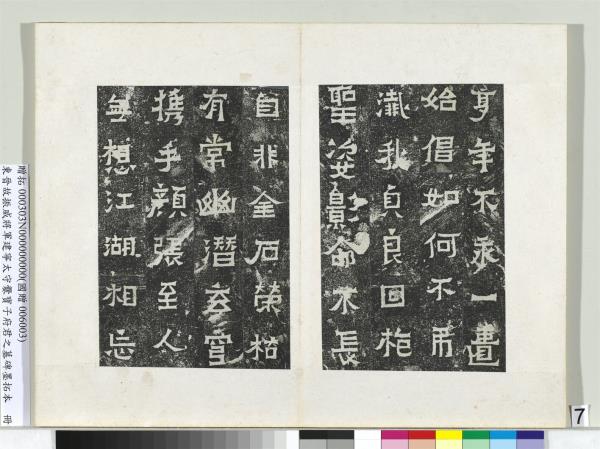 享年不永一匱
始倡如何不弔
殲我貞良回抱
聖姿影命不長
自非金石榮枯
有常幽潛玄穹
攜手顏張至人
無想江湖相忘
贈拓 000303N000000000(國贈 006003)
東晉故振威將軍建寧太守爨寶子府君之墓碑墨拓本 冊
7